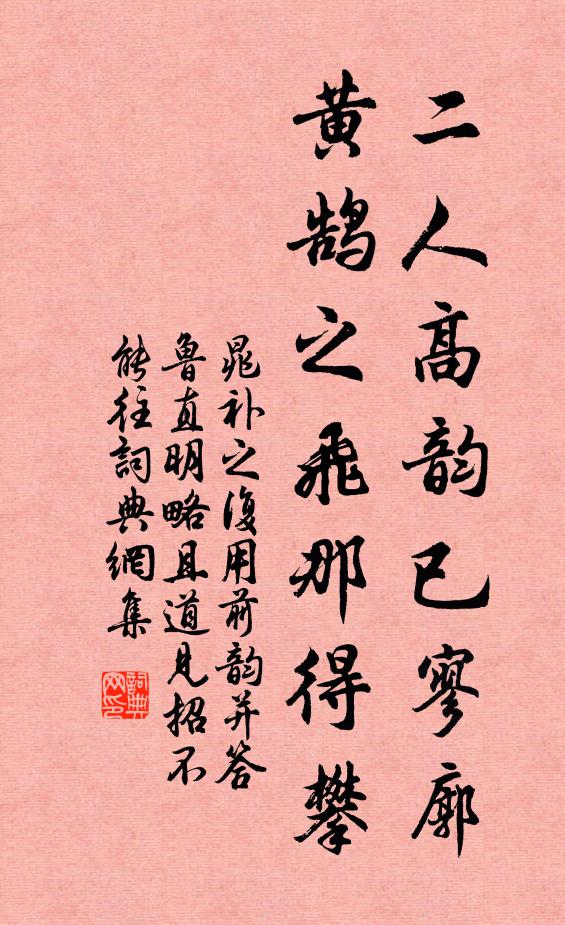 二人高韵已寥廓
黄鹄之飛那得攀
晁补之復用前韵并答
魯直明略且道見招不
能往詞典網集
詞典網印